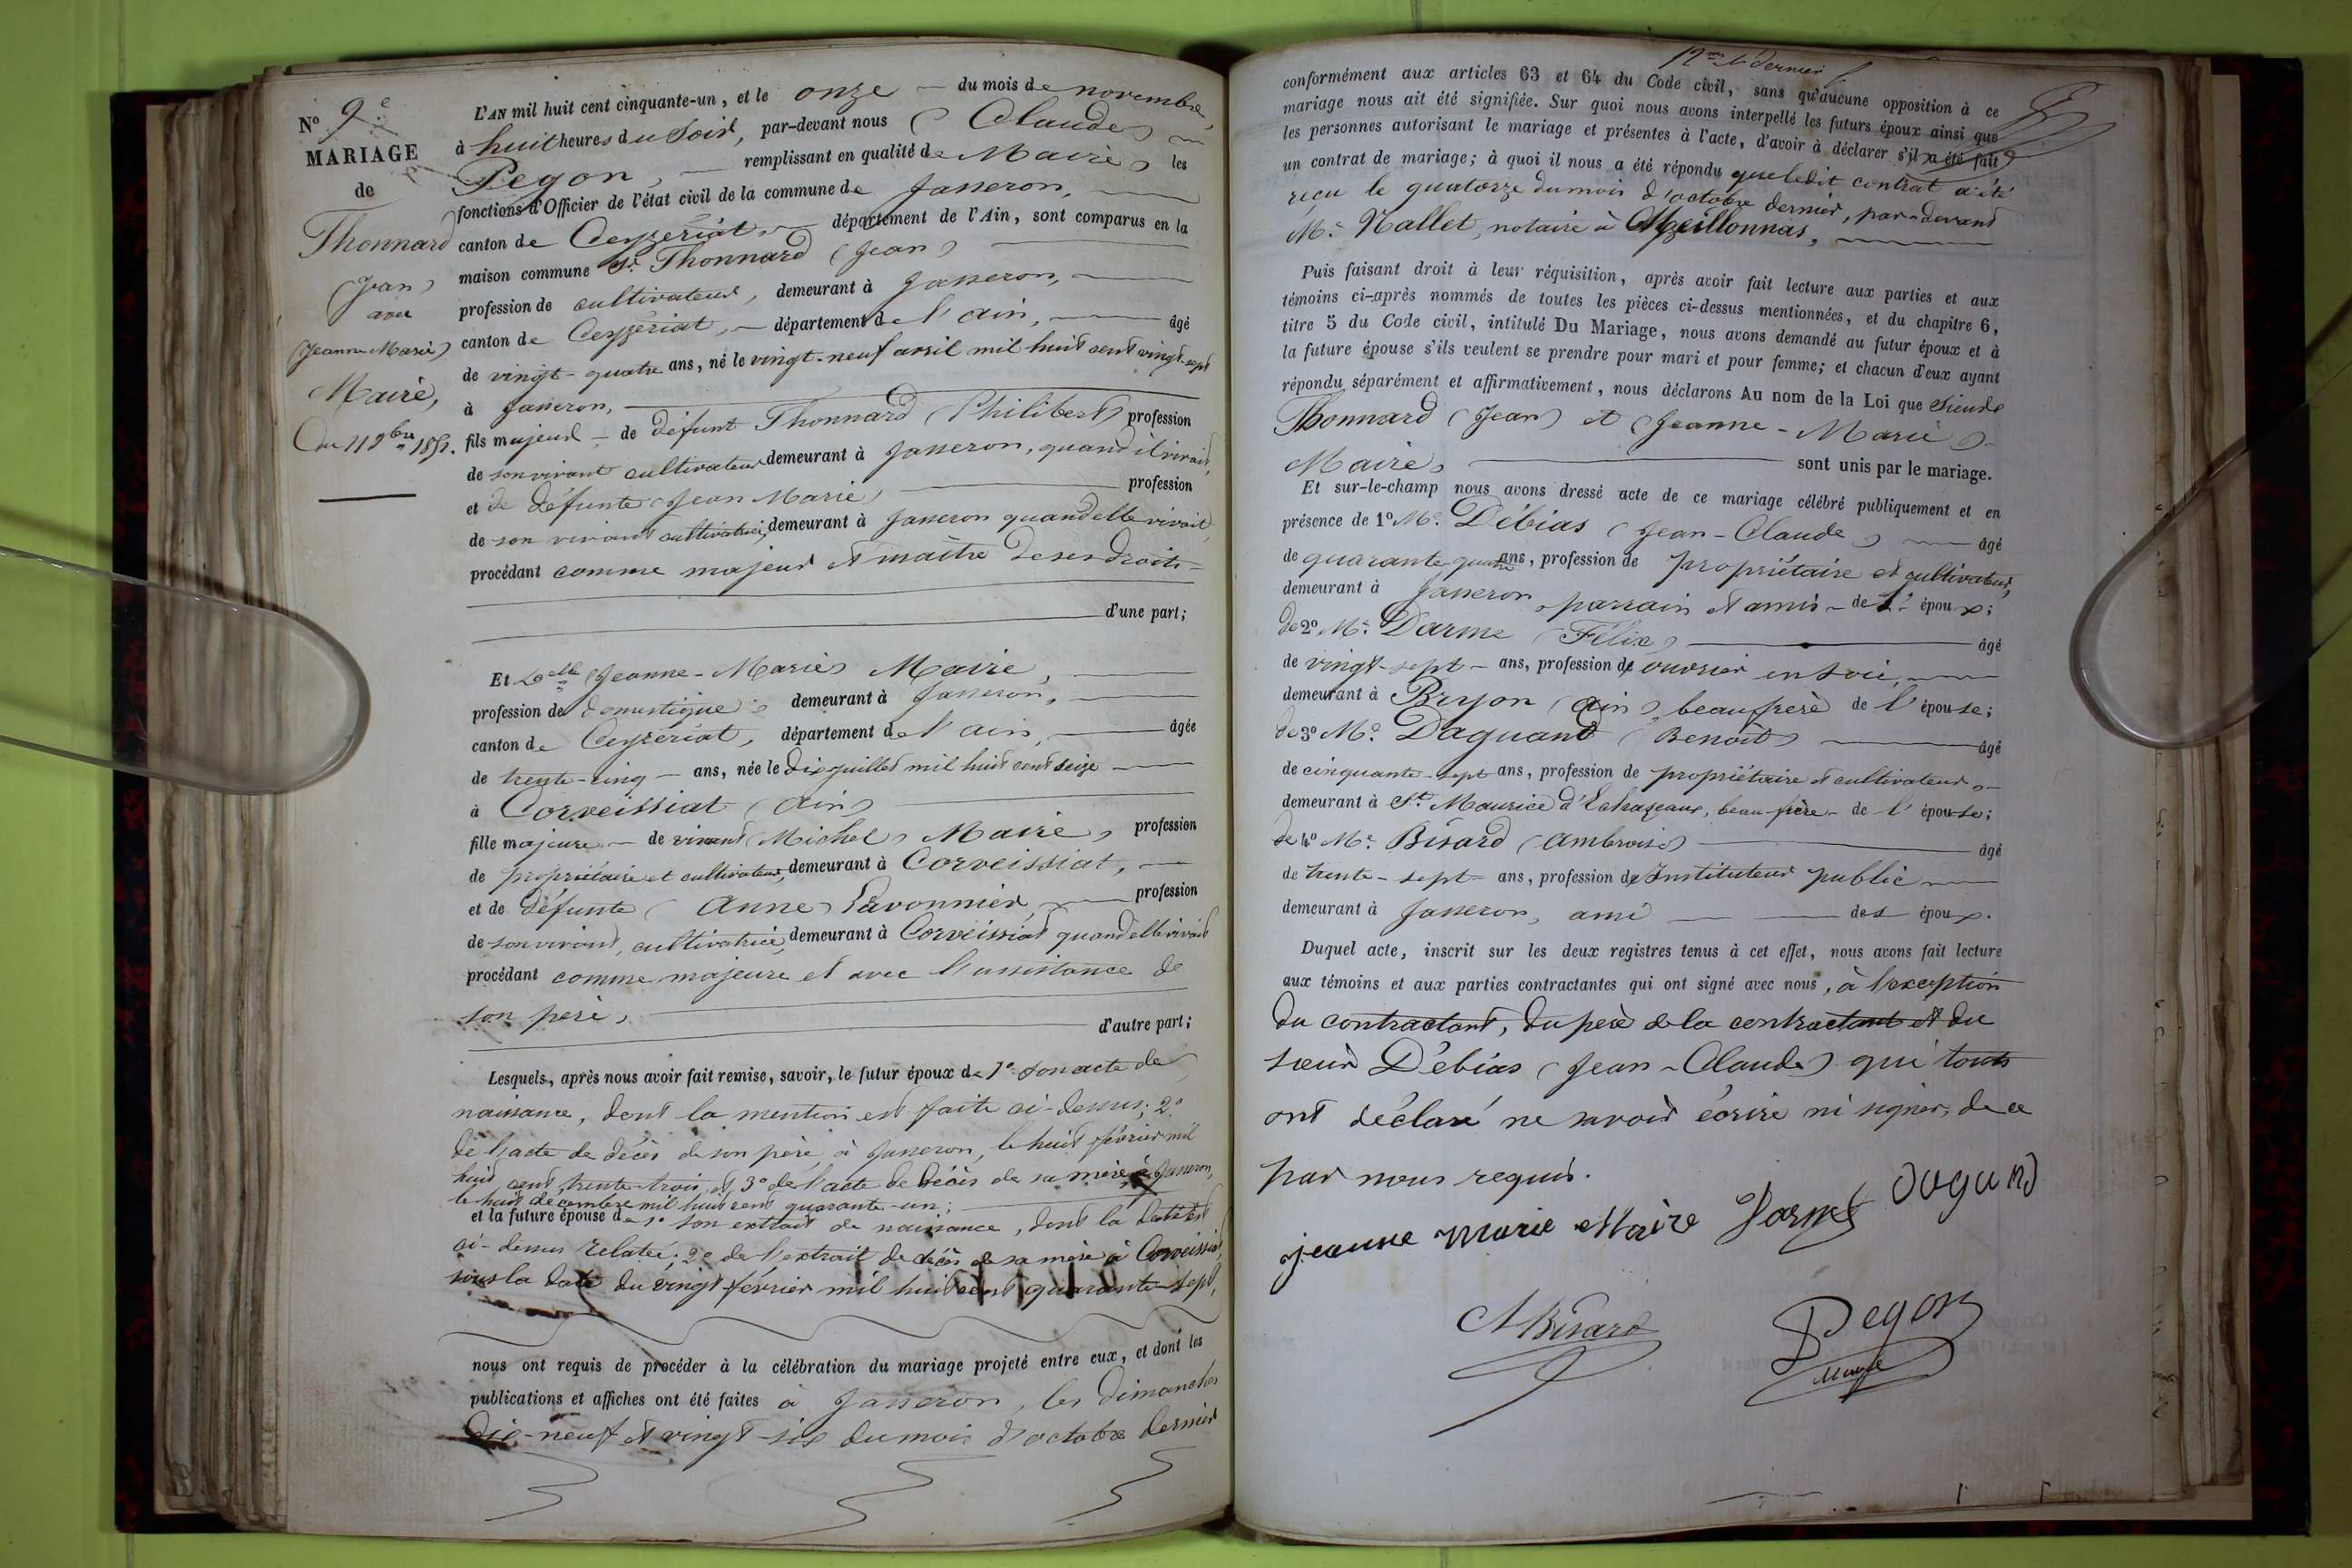 N° 9e
MARIAGE
de
Thonnard
(Jean)
avec
(Jeanne-Marie)
Maire,
Du 11 9bre 1851.
L'AN mil huit cent cinquante-un, et le onze du mois de novembre,
à huit heures du soir, par-devant nous (Claude)
Pegon, remplissant en qualité de Maire les
fonctions d'Officier de l'état civil de la commune de Jasseron,
canton de Ceyzériat, département de l'Ain, sont comparus en la
maison commune Sr Thonnard (Jean)
profession de cultivateur, demeurant à Jasseron,
canton de Ceyzériat, département de l'ain, âgé
de vingt-quatre ans, né le vingt-neuf avril mil huit cent vingt-sept
à Jasseron,
fils majeur de défunt Thonnard (Philibert) profession
de son vivant cultivateur demeurant à Jasseron, quand il vivait,
et de défunte (Jean Marie) profession
de son vivant cultivatrice, demeurant à Jasseron quand elle vivait,
procédant comme majeur et maître de ses droits
d'une part;
Et Delle (Jeanne-Marie) Maire,
profession de domestique demeurant à Jasseron,
canton de Ceyzériat, département de l'ain, âgée
de trente-cinq ans, née le dix juillet mil huit cent seize
à Corveissiat (Ain)
fille majeure de vivant (Michel) Maire, profession
de propriétaire et cultivateur, demeurant à Corveissiat,
et de défunte (Anne) Pavonnier, profession
de son vivant, cultivatrice, demeurant à Corveissiat quand elle vivait
procédant comme majeure et avec l'assistance de
son père,
d'autre part;
Lesquels, après nous avoir fait remise, savoir, le futur époux de 1° son acte de
naissance, dont la mention est faite ci-dessus; 2°
de l'acte de décès de son père, à Jasseron, le huit février mil
huit cent trente-trois, et 3° de l'acte de décès de sa mère, à Jasseron,
le huit décembre mil huit cent quarante-un;
et la future épouse de 1° son extrait de naissance, dont la date est
ci-dessus relatée; 2° de l'extrait de décès de sa mère à Corveissiat,
sous la date du vingt février mil huit cent quarante-sept,
nous ont requis de procéder à la célébration du mariage projeté entre eux, et dont les
publications et affiches ont été faites à Jasseron, les dimanches
dix-neuf et vingt-six du mois d'octobre dernier
12me et dernier f
conformément aux articles 63 et 64 du Code civil, sans qu'aucune opposition à ce
mariage nous ait été signifiée. Sur quoi nous avons interpellé les futurs époux ainsi que
les personnes autorisant le mariage et présentes à l'acte, d'avoir à déclarer s'il a été fait
un contrat de mariage; à quoi il nous a été répondu que ledit contrat a été
reçu le quatorze du mois d'octobre dernier, par-devant
Me Nallet, notaire à Meillonnas,
Puis faisant droit à leur réquisition, après avoir fait lecture aux parties et aux
témoins ci-après nommés de toutes les pièces ci-dessus mentionnées, et du chapitre 6,
titre 5 du Code civil, intitulé Du Mariage, nous avons demandé au futur époux et à
la future épouse s'ils veulent se prendre pour mari et pour femme; et chacun d'eux ayant
répondu séparément et affirmativement, nous déclarons Au nom de la Loi que sieur
Thonnard (Jean) et (Jeanne-Marie)
Maire, sont unis par le mariage.
Et sur-le-champ nous avons dressé acte de ce mariage célébré publiquement et en
présence de 1° Mr Débias (Jean-Claude) âgé
de quarante quatre ans, profession de propriétaire et cultivateur,
demeurant à Jasseron, parrain et amis de l' époux;
de 2° Mr Darme (Félix) âgé
de vingt-sept ans, profession de ouvrier en soie,
demeurant à Bryon (Ain), beau frère de l'épouse;
de 3° Mr Daguand (Benoît) âgé
de cinquante-sept ans, profession de propriétaire et cultivateur
demeurant à St Maurice d'Echazeaux, beau-frère de l'épouse;
de 4° Mr Bérard (Ambroise) âgé
de trente-sept ans, profession de Instituteur public
demeurant à Jasseron, ami des époux.
Duquel acte, inscrit sur les deux registres tenus à cet effet, nous avons fait lecture
aux témoins et aux parties contractantes qui ont signé avec nous, à l'exception
du contractant, du père de la contractant et du
sieur Débias (Jean-Claude) qui tous
ont déclaré ne savoir écrire ni signer, de ce
par nous requis.
jeanne marie Maire Darme Dagand
A Bérard Pegon
Maire